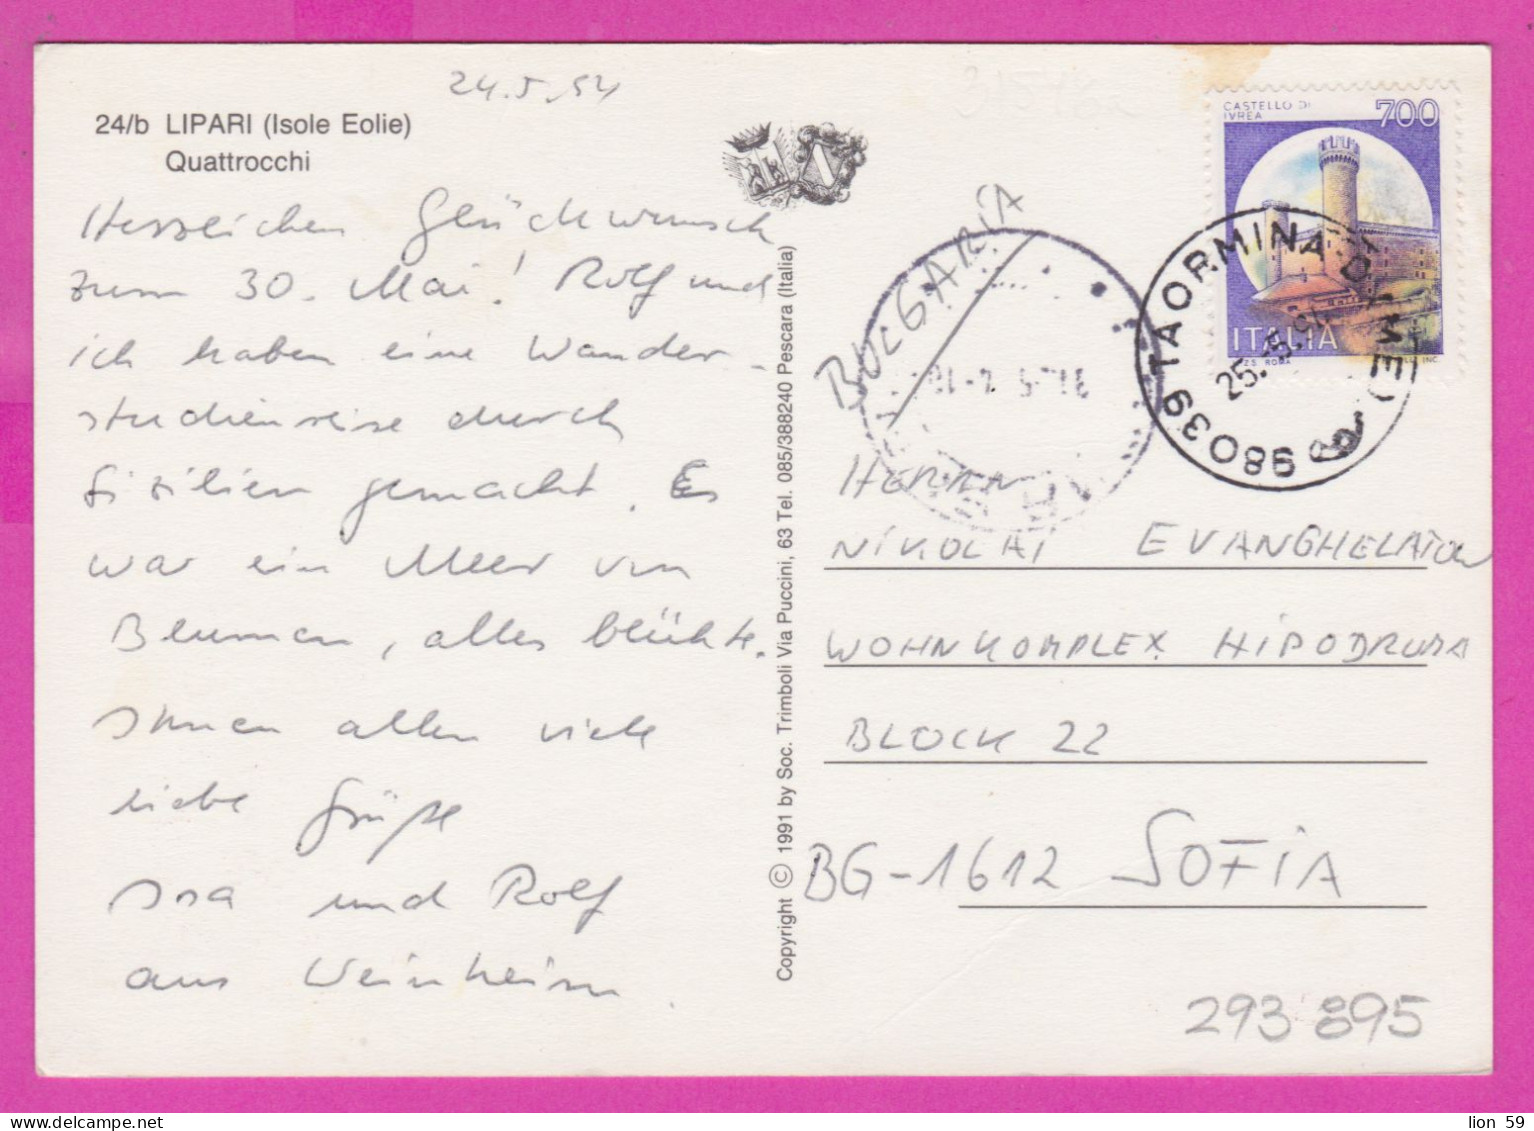 24.5.94
24/b LIPARI (Isole Eolie)
Quattrocchi
Herzlichen Glückwunsch
zum 30. Mai! Rolf und
ich haben eine Wander-
studienreise durch
Sizilien gemacht. Es
war ein Meer von
Blumen, alles blühte.
Ihnen allen viele
liebe Grüße
Isa und Rolf
aus Weinheim.
Copyright © 1991 by Soc. Trimboli Via Puccini, 63 Tel. 085/388240 Pescara (Italia)
CASTELLO DI
IVREA
700
ITALIA
98039 TAORMINA D (ME)
25.5.94
BULGARIA
HERRN
NIKOLAI EVANGHELATOV
WOHNKOMPLEX HIPODRUMA
BLOCK 22
BG-1612 SOFIA
293 895
lion 59